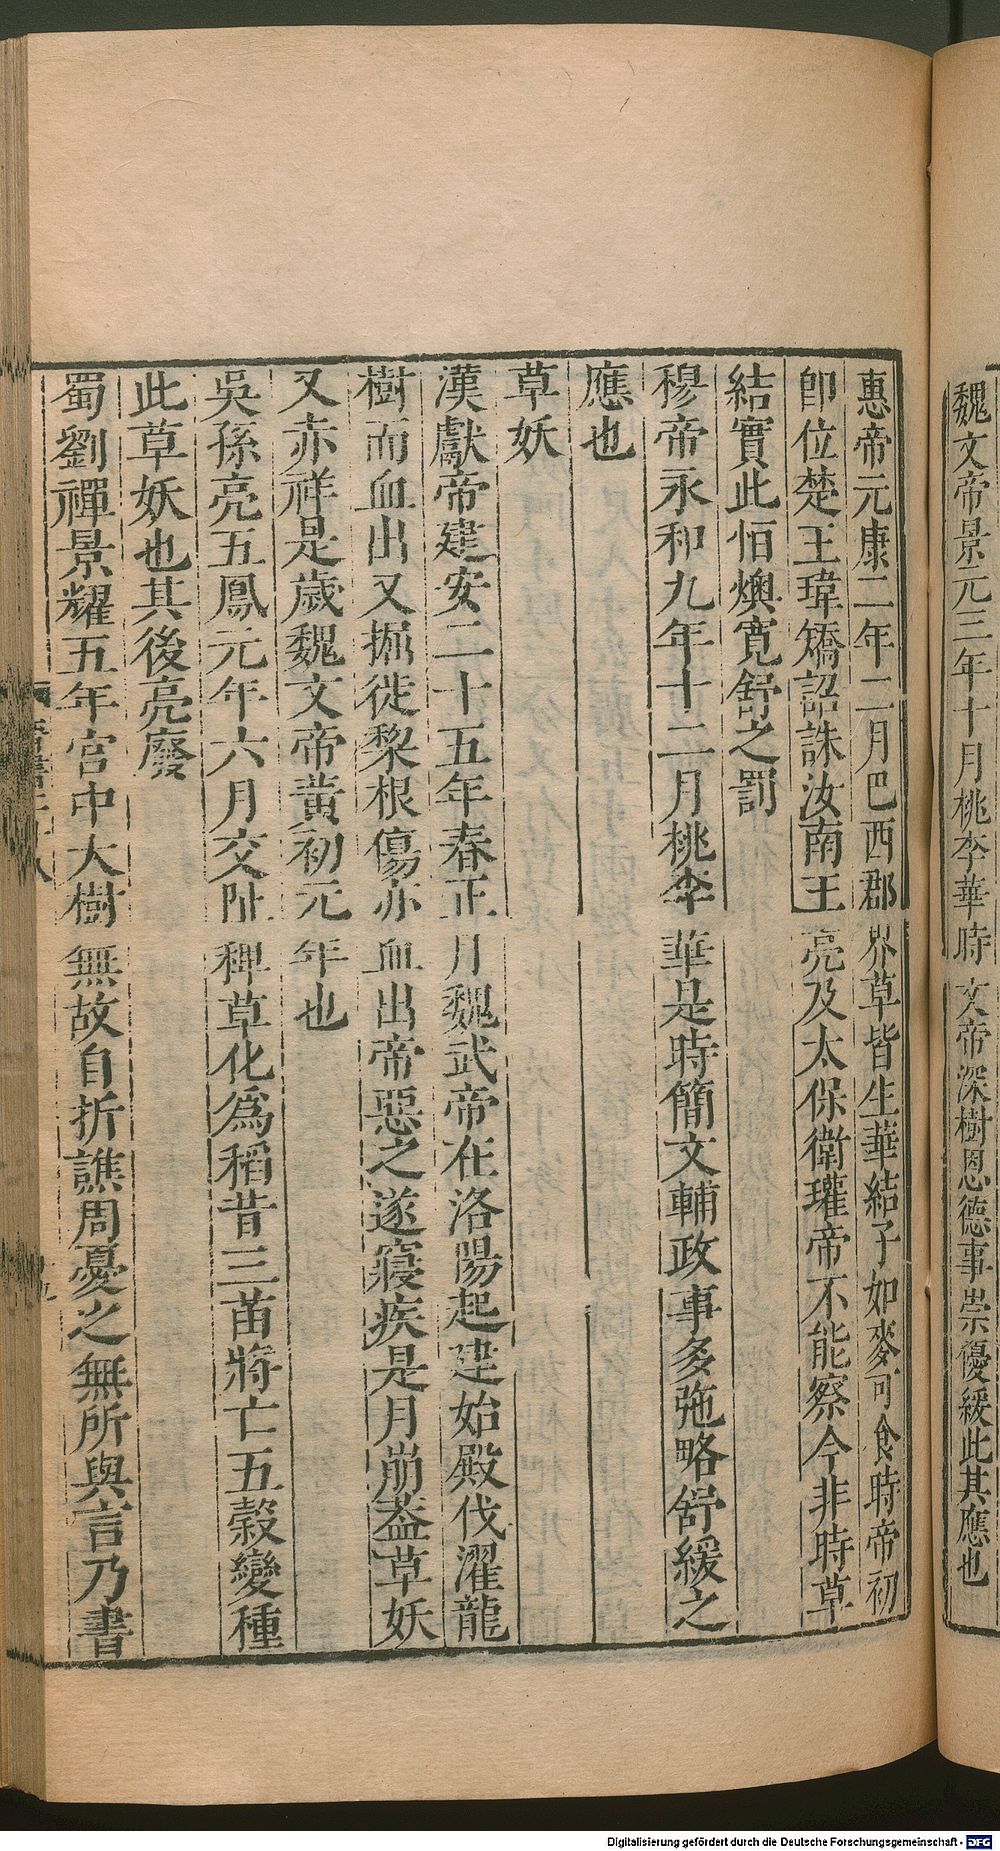 魏文帝景元三年十月桃李華時文帝深樹恩德事崇優緩此其應也
惠帝元康二年二月巴西郡界草皆生華結子如麥可食時帝初
卽位楚王瑋矯詔誅汝南王亮及太保衛瓘帝不能察今非時草
結實此恒燠寛舒之罰
穆帝永和九年十二月桃李華是時簡文輔政事多弛略舒緩之
應也
草妖
漢獻帝建安二十五年春正月魏武帝在洛陽起建始殿伐濯龍
樹而血出又掘徙棃根傷亦血出帝惡之遂寢疾是月崩葢草妖
又赤祥是歲魏文帝黃初元年也
吳孫亮五鳳元年六月交阯稗草化爲稻昔三苗將亡五穀變種
此草妖也其後亮廢
蜀劉禪景耀五年宮中大樹無故自折譙周憂之無所與言乃書
Digitalisierung gefördert durch die Deutsche Forschungsgemeinschaft - DFG